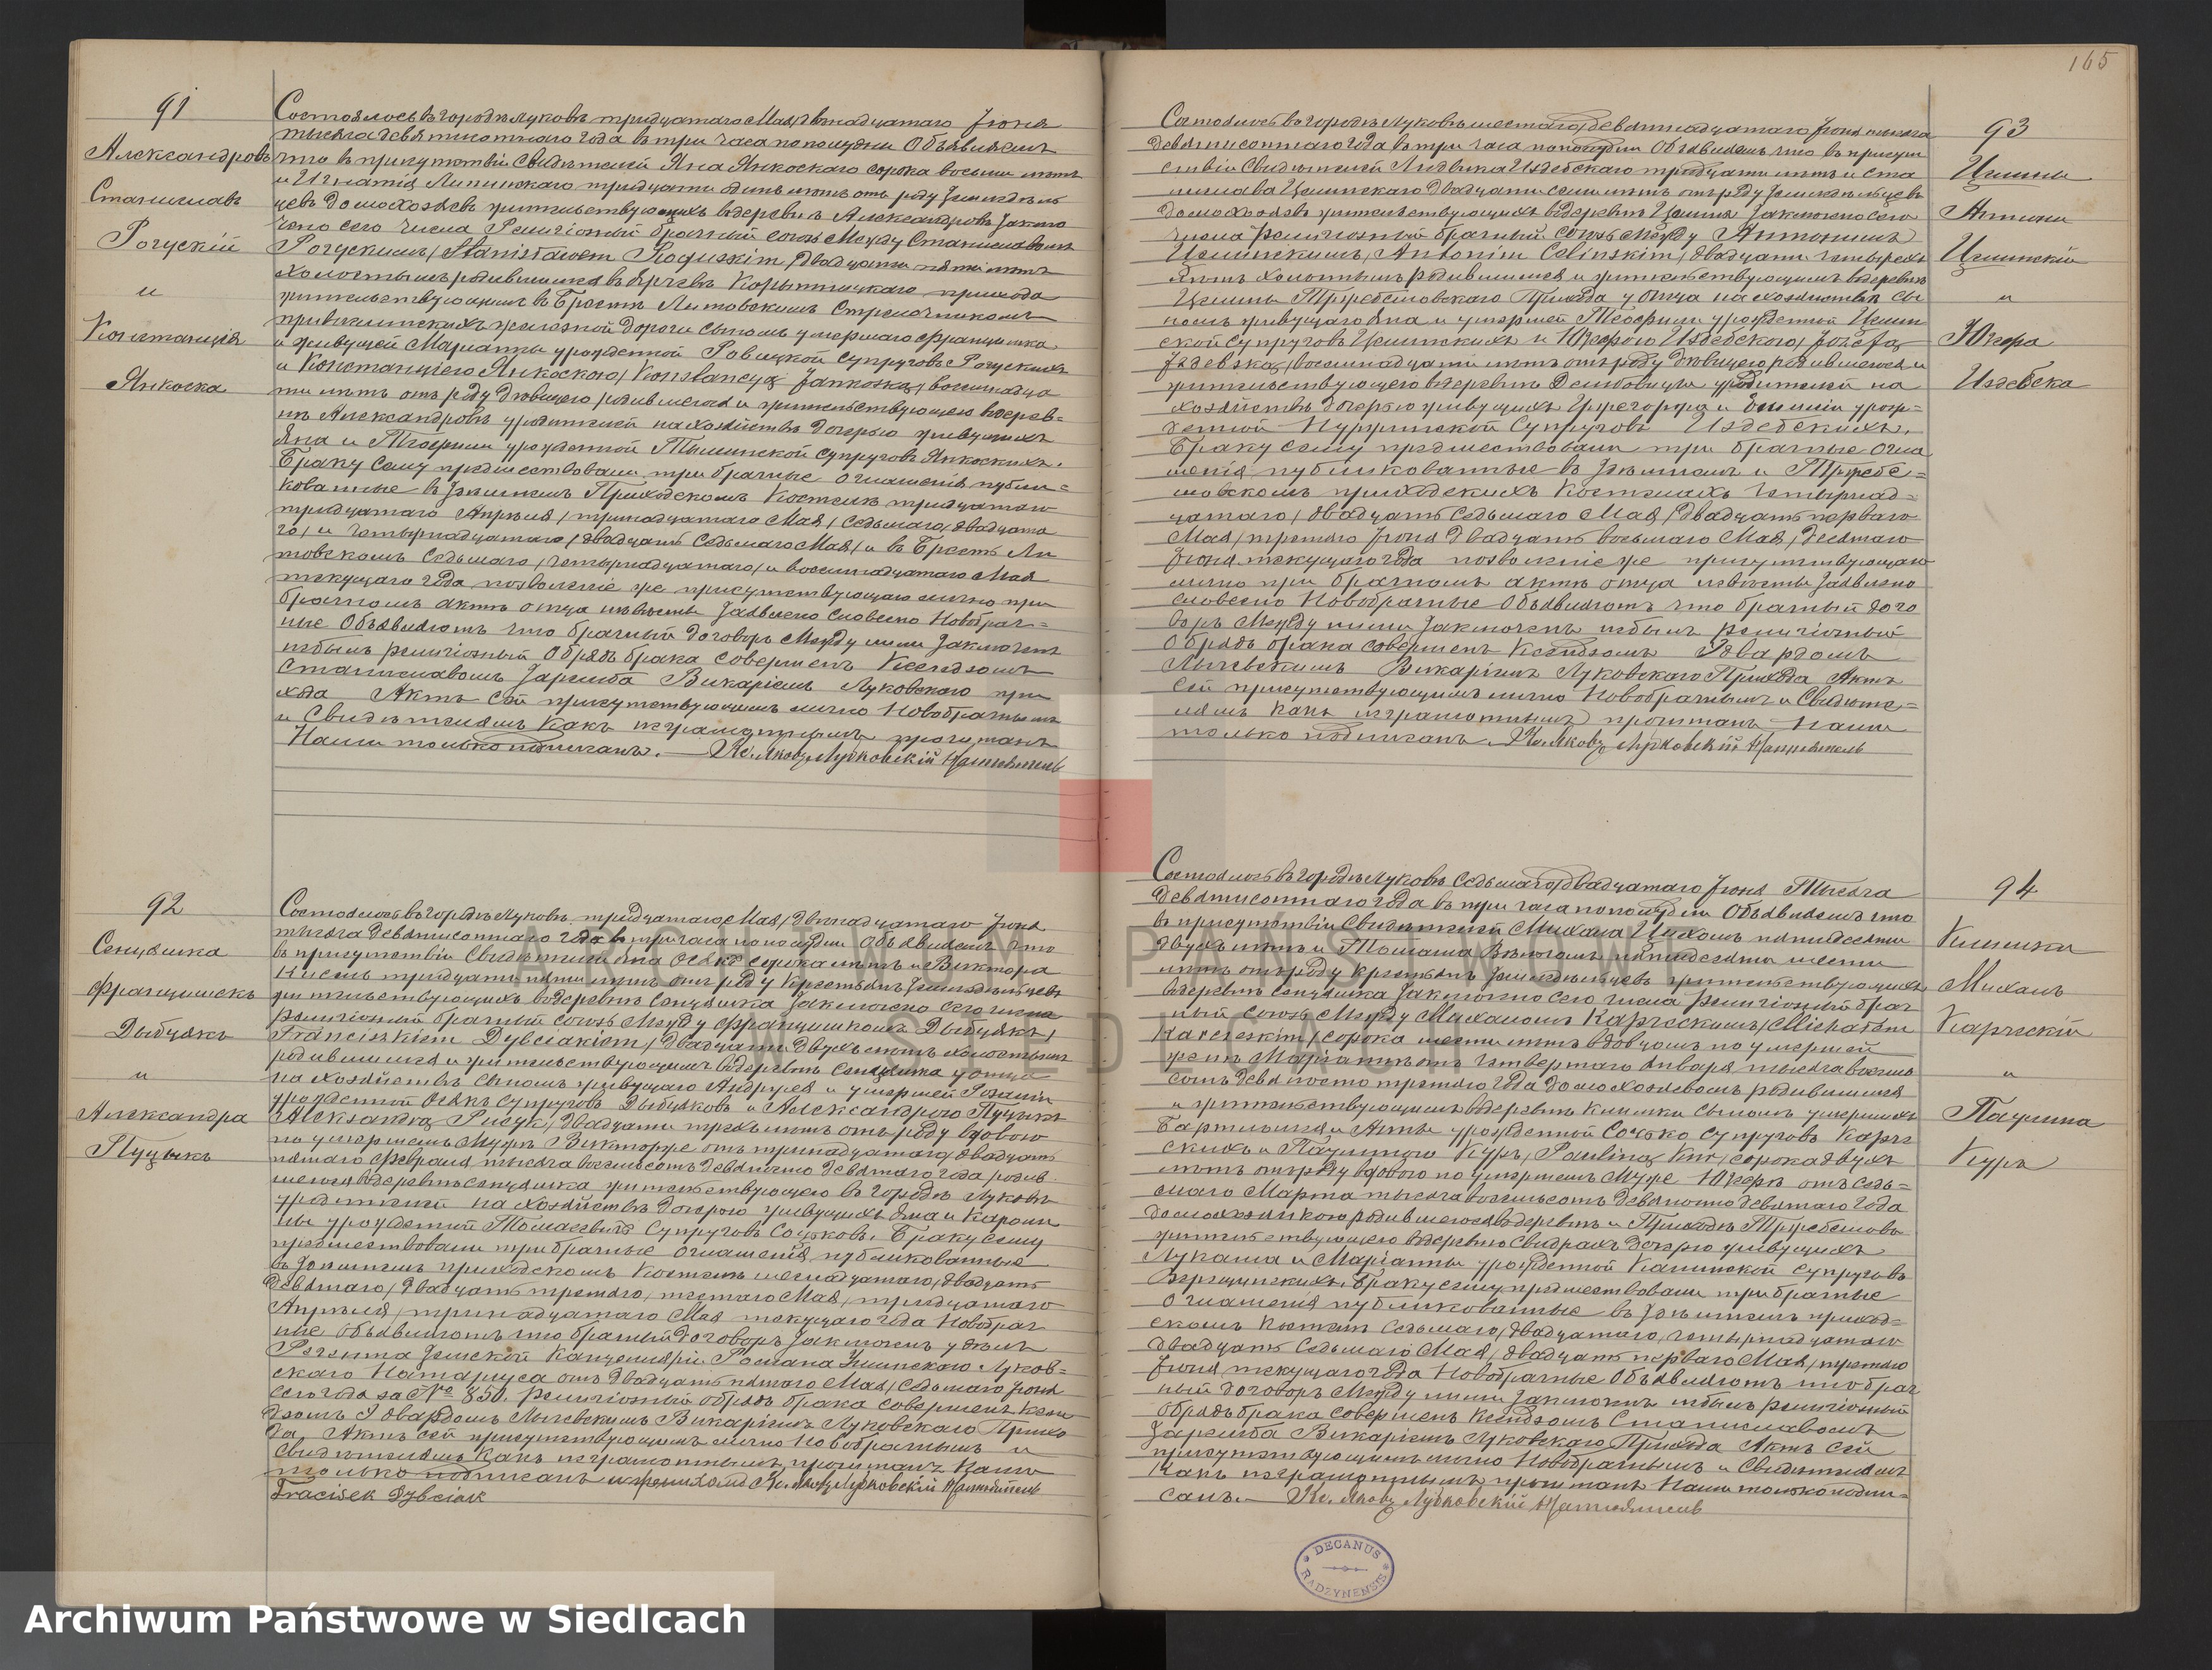 165
91
Александровъ
Станиславъ
Рогускій
и
Констанція
Янкоска
Состоялось въ городѣ Луковѣ тридцатаго Мая/двѣнадцатаго Іюня
тысяча девятисотнаго года въ три часа пополудни. Объявляемъ
что въ присутствіи Свидѣтелей Яна Янкоскаго сорока восьми лѣтъ
и Игнатія Липинскаго тридцати лѣтъ отъ роду земледѣль
цевъ домохозяевъ жительствующихъ въ деревнѣ Александровъ заклю
чено сего числа Религіозный брачный союзъ между Станиславомъ
Рогускимъ /Stanisławem Roguskim/ двадцати пяти лѣтъ
холостымъ родившимся въ Корытницкаго прихода
жительствующимъ въ Брестъ Литовскомъ Стрелочникомъ
привислинскихъ железной дороги сыномъ умершаго Францишка
и живущей Маріанны урожденной Равицкой супруговъ Рогускихъ
и Констанціею Янкоскою /Konstancyą Jankoską/ восемнадца
ти лѣтъ отъ роду дѣвицею родившеюся и жительствующею въ дерев=
нѣ Александровъ у родителей на хозяйствѣ дочерью живущихъ
Яна и Теофили урожденной Тышинской супруговъ Янкоскихъ.
Браку сему предшествовали три брачные оглашенія публи=
кованные въ здѣшнемъ Приходскомъ Костелѣ тридцатаго
Апрѣля /тринадцатаго Мая/ седьмаго /двадцата
го/ и четырнадцатаго /двадцать седьмаго Мая/ и въ Брестъ Ли
товскомъ седьмаго, четырнадцатаго, и восемнадцатаго Мая
текущаго года позволеніе же присутствующаго лично при
брачномъ актѣ отца невѣсты заявлено словесно Новобрач=
ные объявляютъ что брачный договоръ между ними заключенъ
небылъ религіозный обрядъ брака совершенъ Ксендзомъ
Станиславомъ Заремба Викаріемъ Луковскаго при
хода Актъ сей присутствующимъ лично Новобрачнымъ
и Свидѣтелямъ какъ неграмотнымъ прочитанъ
Нами только подписанъ.
92
Сенцяшка
Францишекъ
Дыбцякъ
и
Александра
Пуцыкъ
Состоялось въ городѣ Луковѣ тридцатаго Мая/двѣнадцатаго Іюня
тысяча девятисотнаго года въ три часа пополудни Объявляемъ что
въ присутствіи Свидѣтелей Яна Осякъ сорока лѣтъ и Виктора
тридцати пяти лѣтъ отъ роду Крестьянъ земледѣльцевъ
жительствующихъ въ деревнѣ Сенцяшка заключено сего числа
религіозный брачный союзъ между Францишкомъ Дыбцякъ /
Franciszkiem Dybciakiem/ двадцати двухъ лѣтъ холостымъ
родившимся и жительствующимъ въ деревнѣ Сенцяшка у отца
на хозяйствѣ сыномъ живущаго Андрея и умершей Розаліи
урожденной Осякъ супруговъ Дыбцяковъ и Александрою Пуцыкъ
/Aleksandrą Pucyk/ двадцати трехъ лѣтъ отъ роду вдовою
по умершемъ мужѣ Викторѣ отъ тринадцатаго /двадцать
пятаго Февраля тысяча восемьсотъ девяносто девятаго года /родив
шеюся въ деревнѣ Сенцяшка жительствующею въ городѣ Луковѣ
у родителей на хозяйствѣ дочерью живущихъ Яна и Кароли
ны урожденной Томасевичъ супруговъ Браку сему
предшествовали три брачные оглашенія публикованные
въ здѣшнемъ приходскомъ Костелѣ
двадцать третьяго, шестаго Мая, тридцатаго
Апрѣля, тринадцатаго Мая текущаго года Новобрач
ные объявляютъ что брачный договоръ заключенъ у нихъ
Регента Земской Канцеляріи Романа Луков=
скаго Нотаріуса отъ двадцать пятаго Мая /седьмаго Іюня
сего года за № 850. Религіозный обрядъ брака совершенъ Ксен
дзомъ Эдвардомъ Викаріемъ Луковскаго Прихо
да Актъ сей присутствующимъ лично Новобрачнымъ и
Свидѣтелямъ какъ неграмотнымъ прочитанъ Нами
только подписанъ
Fracisek Dybciak
93
Целины
Антони
Целинскій
и
Юзефа
Издебска
Состоялось въ городѣ Луковѣ шестаго/девятнадцатаго Іюня тысяча
девятисотнаго года въ три часа пополудни Объявляемъ что въ присут
ствіи Свидѣтелей Людвика Издебскаго тридцати лѣтъ и Ста
нислава Целинскаго двадцати семи лѣтъ отъ роду земледѣльцевъ
домохозяевъ жительствующихъ въ деревнѣ Целины заключено сего
числа религіозный брачный союзъ между Антонимъ
Целинскимъ /Antonim Celinskim/ двадцати четырехъ
лѣтъ холостымъ родившимся и жительствующимъ въ деревнѣ
Целины Тржебешовскаго Прихода у отца на хозяйствѣ сы
номъ живущаго Яна и умершей Теофили урожденной Целин
ской супруговъ Целинскихъ и Юзефою Издебскою /Józefą
Izdebską/ восемнадцати лѣтъ отъ роду дѣвицею родившеюся и
жительствующею въ деревнѣ у родителей на
хозяйствѣ дочерью живущихъ Гржегоржа и Эмиліи урож=
денной супруговъ Издебскихъ.
Браку сему предшествовали три брачные огла
шенія публикованные въ здѣшнемъ и Тржебе=
шовскомъ приходскихъ Костелахъ четырнад=
цатаго /двадцать седьмаго Мая/ двадцать перваго
Мая /третьяго Іюня двадцать восьмаго Мая /десятаго
Іюня текущаго года позволеніе же присутствующаго
лично при брачномъ актѣ отца невѣсты заявлено
словесно Новобрачные Объявляютъ что брачный дого
воръ между ними заключенъ небылъ религіозный
обрядъ брака совершенъ Ксендзомъ Эдвардомъ
Викаріемъ Луковскаго Прихода Актъ
сей присутствующимъ лично Новобрачнымъ и Свидѣте=
лямъ какъ неграмотнымъ прочитанъ Нами
только подписанъ.
94
Михалъ
Карческій
и
Паулина
Куръ
Состоялось въ городѣ Луковѣ седьмаго/двадцатаго Іюня Тысяча
девятисотнаго года въ три часа пополудни Объявляемъ что
въ присутствіи Свидѣтелей Михала пятидесяти
двухъ лѣтъ и Томаша пятидесяти шести
лѣтъ отъ роду крестьянъ земледѣльцевъ жительствующихъ
въ деревнѣ Сенцяшка заключено сего числа религіозный брач
ный союзъ между Михаломъ Карческимъ /Michałem
Karczeskim/ сорока шести лѣтъ вдовцомъ по умершей
женѣ Маріаннѣ отъ четвертаго Января тысяча восемь
сотъ девяносто третьяго года домохозяевомъ родившимся
и жительствующимъ въ деревнѣ сыномъ умершихъ
и Анны урожденной Сочко супруговъ Карче
скихъ и Паулиною Куръ /Pauliną Kur/ сорока двухъ
лѣтъ отъ роду вдовою по умершемъ мужѣ Юзефѣ отъ седь=
маго Марта тысяча восемьсотъ девяносто девятаго года
домохозяйкою родившеюся въ деревнѣ и Приходѣ Тржебешовъ
жительствующею въ деревнѣ Свидрахъ дочерью живущихъ
Лукаша и Маріанны урожденной Калинской супруговъ
Браку сему предшествовали три брачные
оглашенія публикованные въ здѣшнемъ приход=
скомъ Костелѣ седьмаго /двадцатаго, четырнадцатаго
двадцать седьмаго Мая /двадцать перваго Мая /третьяго
Іюня текущаго года Новобрачные Объявляютъ что брач
ный договоръ между ними заключенъ небылъ религіозный
обрядъ брака совершенъ Ксендзомъ Станиславомъ
Заремба Викаріемъ Луковскаго Прихода Актъ сей
присутствующимъ лично Новобрачнымъ и Свидѣтелямъ
какъ неграмотнымъ прочитанъ Нами только подпи=
санъ.
DECANUS
RADZYNENSIS
ARCHIWUM PAŃSTWOWE
W SIEDLCACH
Archiwum Państwowe w Siedlcach